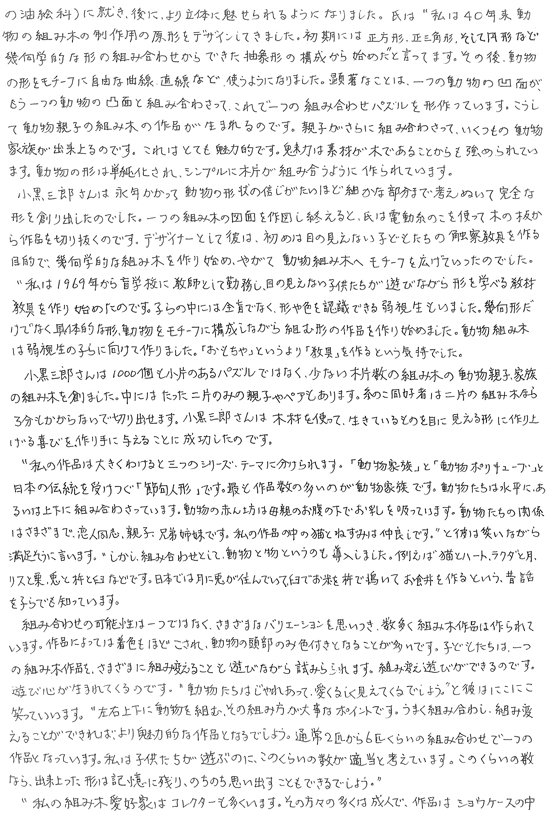 の油絵科)に就き、後に、より立体に魅せられるようになりました。氏は"私は40年来動
物の組み木の制作用の原形をデザインしてきました。初期には正方形、正三角形、そして円形など
幾何学的な形の組み合わせからできた抽象形の構成から始めた"と言ってます。その後、動物
の形をモチーフに自由な曲線、直線など、使うようになりました。顕著なことは、一つの動物の凹面が、
もう一つの動物の凸面と組み合わさって、これで一つの組み合わせパズルを形作っています。こうし
て動物親子の組み木の作品が生まれるのです。親子がさらに組み合わさって、いくつもの動物
家族が出来上るのです。これはとても魅力的です。魅力は素材が木であることからも強められてい
ます。動物の形は単純化され、シンプルに木片が組み合うように作られています。
小黒三郎さんは永年かかって動物の形状の信じがたいほど細かな部分まで考えぬいて完全な
形を創り出したのでした。一つの組み木の図面を作図し終えると、氏は電動糸のこを使って木の板か
ら作品を切り抜くのです。デザイナーとして彼は、初めは目の見えない子どもたちの触察教具を作る
目的で、幾何学的な組み木を作り始め、やがて動物組み木へモチーフを広げていったのでした。
"私は1969年から盲学校に教師として勤務し、目の見えない子供たちが遊びながら形を学べる教材
教具を作り始めたのです。子らの中には全盲でなく、形や色を認識できる弱視生もいました。幾何形だ
けでなく具体的な形、動物をモチーフに構成しながら組む形の作品を作り始めました。動物組み木
は弱視生の子らに向けて作りました。「おもちゃ」というより「教具」を作るという気持でした。
小黒三郎さんは1000個も小片のあるパズルではなく、少ない木片数の組み木の動物親子、家族
の組み木を創りました。中にはたった二片のみの親子やペアもあります。糸のこ同好者は二片の組み木なら
3分もかからないで切り出せます。小黒三郎さんは木材を使って、生きているものを目に見える形に作り上
げる喜びを、作り手に与えることに成功したのです。
"私の作品は大きくわけると三つのシリーズ・テーマに分けられます。「動物家族」と「動物ポリキューブ」と
日本の伝統を受けつぐ「節句人形」です。最も作品数の多いのが動物家族です。動物たちは水平に、あ
るいは上下に組み合わさっています。動物の赤ん坊は母親のお腹の下でお乳を吸っています。動物たちの関係
はさまざまで、恋人同志、親子、兄弟姉妹です。私の作品の中の猫とねずみは仲良しです。"と彼は笑いながら
満足そうに言います。"しかし、組み合わせとして、動物と物というのも導入しました。例えば猫とハート、ラクダと月、
リスと栗、兎と杵と臼などです。日本では月に兎が住んでいて臼でお米を杵で搗いてお餅を作るという、昔話
を子らでも知っています。
組み合わせの可能性は一つではなく、さまざまなバリエーションを思いつき、数多く組み木作品は作られて
います。作品によっては着色もほどこされ、動物の頭部のみ色付きとなることが多いです。子どもたちは、一つ
の組み木作品を、さまざまに組み変えることと遊びながら試みられます。組み変え遊びができるのです。
遊び心が生まれてくるのです。"動物たちはじゃれあって、愛くるしく見えてくるでしょう。"と彼はにこにこ
笑っていいます。"左右上下に動物を組む、その組み方が大事なポイントです。うまく組み合わし、組み変
えることができれば、より魅力的な作品となるでしょう。通常2匹から6匹くらいの組み合わせで一つの
作品となっています。私は子供たちが遊ぶのに、このくらいの数が適当と考えています。このくらいの数
なら、出来上った形は記憶に残り、のちのち思い出すこともできるでしょう。"
"私の組み木愛好家はコレクターも多くいます。その方々の多くは成人で、作品はショウケースの中